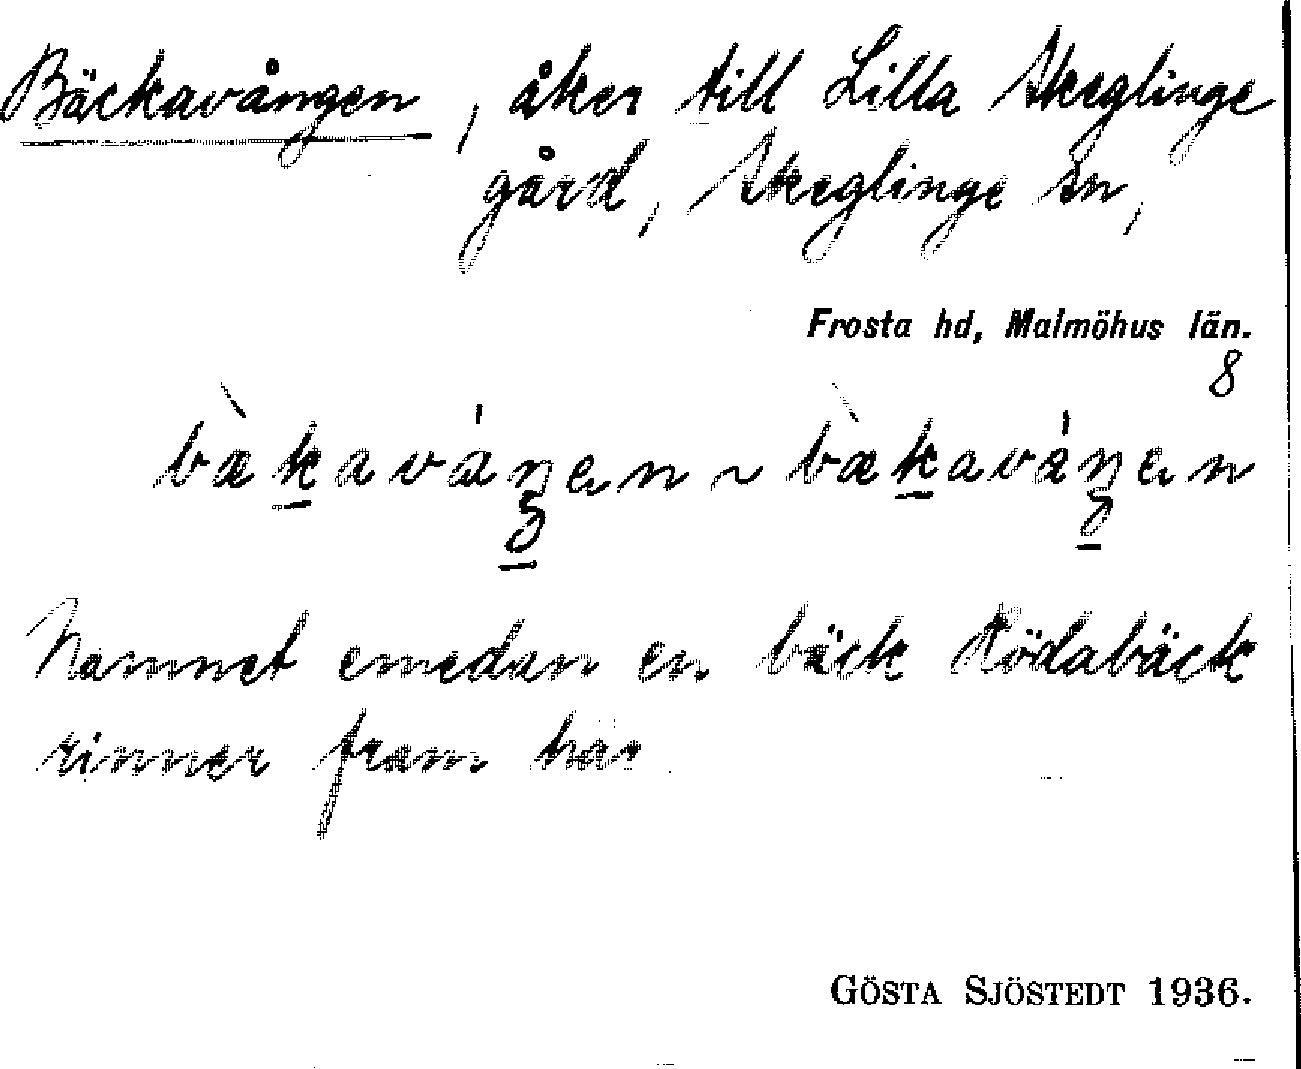 Bäckavången, åker till Lilla Skeglinge
gård, Skeglinge sn,
Frosta hd, Malmöhus län.
8
Namnet emedan en bäck Rödabäck
rinner fram här
GÖSTA SJÖSTEDT 1936.